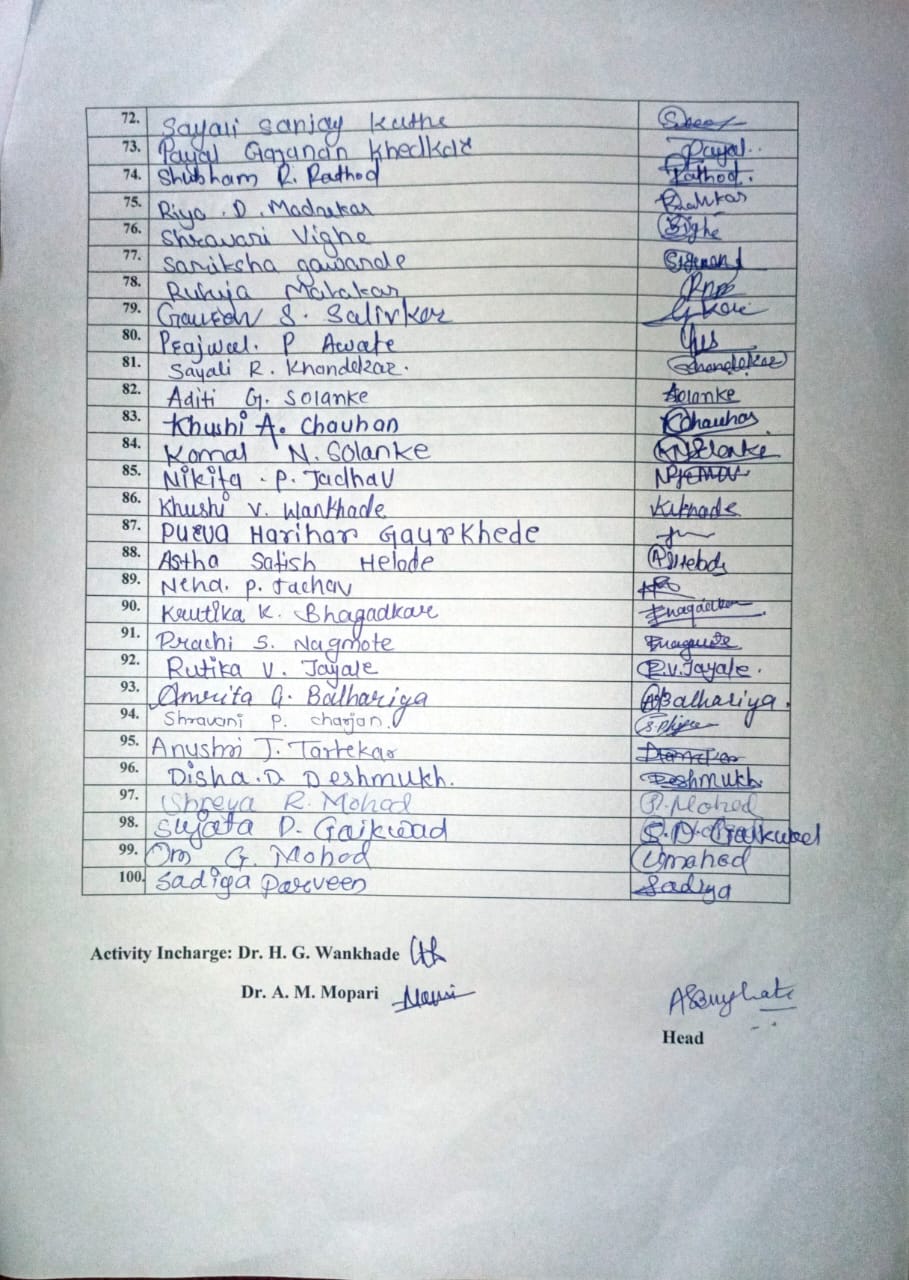 72. Sayali Sanjay Kuthe
73. Payal Gajanan Khedkar Payal..
74. Shubham R. Rathod Rathod.
75. Riya . D. Madrekar
76. Shravani Vighe Vighe
77. Samiksha gawande
78. Rutuja Matakar
79. S. Salivkar
80. Prajwal. P Awate
81. Sayali R. Khandekar. Khandekar
82. Aditi G. Solanke Solanke
83. Khushi A. Chauhan Kchauhan
84. Komal N. Solanke KNSolanke
85. Nikita . P. Jadhav
86. Khushi V. Wankhade
87. Purva Harihar Gaurkhede
88. Astha Satish Helode
89. Neha. P. Jadhav
90. Krutika K. Bhagadkar Bhagadkar
91. Prachi S. Nagmote
92. Rutika V. Jayale R.V.Jayale.
93. Amrita G. Balhariya Balhariya.
94. Shravani P. charjan.
95. Anushri J. Tartekar
96. Disha.D. Deshmukh. Deshmukh.
97. Shreya R. Mohod Mohod
98. Sujata D. Gaikwad S. D. Gaikwad
99. Om G. Mohod Omohod
100. Sadiqa Parveen Sadiya
Activity Incharge: Dr. H. G. Wankhade
Dr. A. M. Mopari
Head